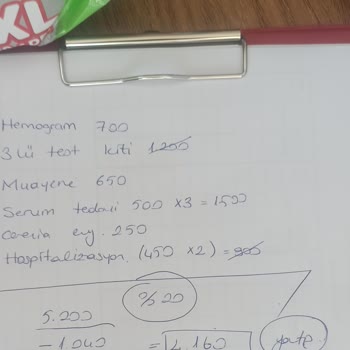 XL
Hemogram 700
3 lü test kiti 1200
Muayene 650
Serum tedavi 500 x3 = 1500
Cerenia enj. 250
Hospitalizasyon (450 x2) = 900
%20
5.200
- 1.040 = 4.160